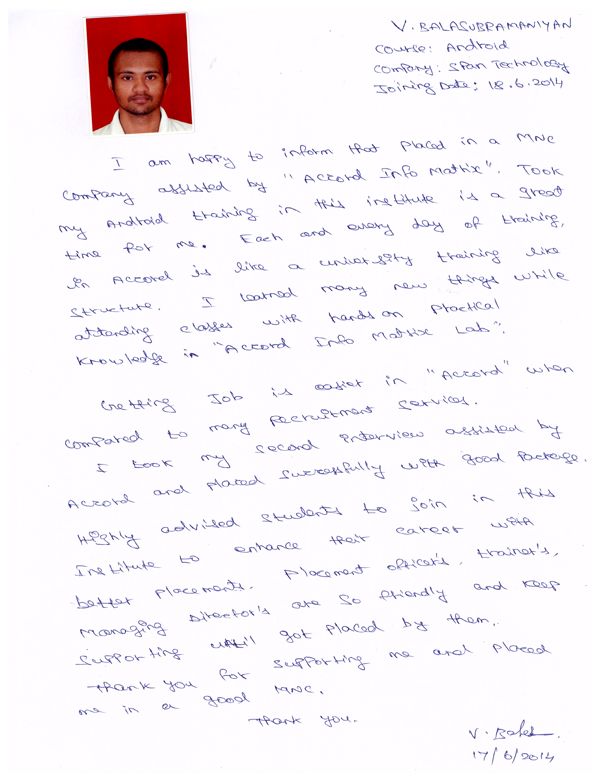 V. BALASUBRAMANIYAN
Course: Android
Company: Span Technology
Joining Date: 18.6.2014
I am happy to inform that placed in a MNC
company assisted by "Accord Info Matrix". Took
my Android training in this institute is a great
time for me. Each and every day of training,
in Accord is like a university training like
structure. I learned many new things while
attending classes with hands on practical
knowledge in "Accord Info Matrix Lab".
Getting Job is easier in "Accord" when
compared to many recruitment services.
I took my second interview assisted by
Accord and placed successfully with good package.
Highly advised students to join in this
Institute to enhance their career with
better placements. Placement officer's, trainer's,
Managing Director's are so friendly and keep
supporting until got placed by them.
Thank you for supporting me and placed
me in a good MNC.
Thank you.
V. Balas
17/6/2014